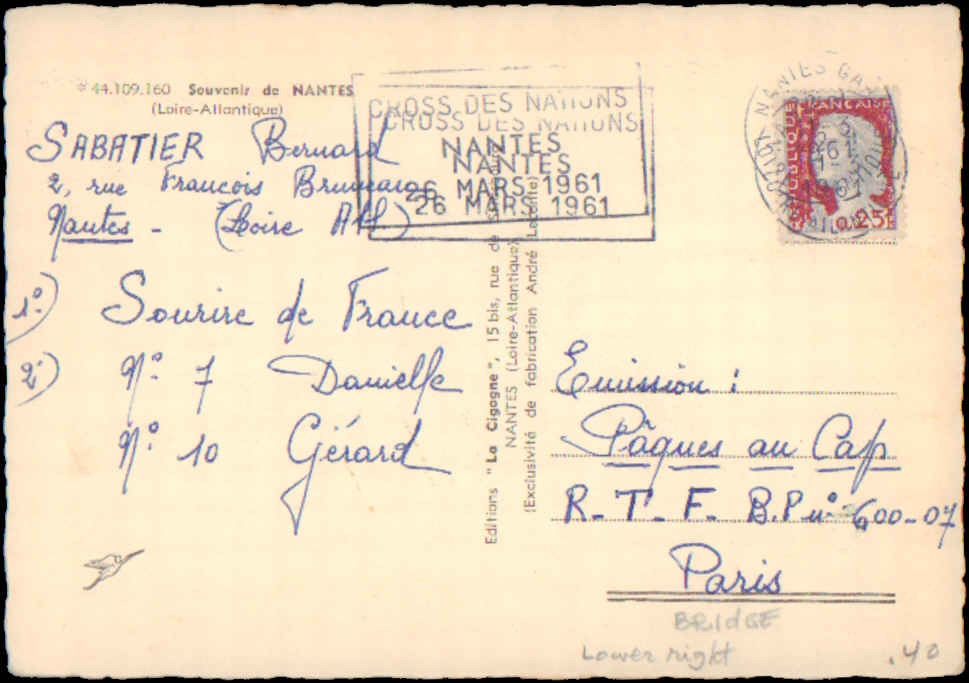 44.109.160 Souvenir de NANTES
(Loire-Atlantique)
SABATIER Bernard
2, rue François
Nantes - (Loire Atl)
1º) Sourire de France
2º) Nº 7 Danielle
Nº 10 Gérard
CROSS DES NATIONS
CROSS DES NATIONS
NANTES
NANTES
26 MARS 1961
26 MARS 1961
Editions "La Cigogne", 15 bis, rue de
NANTES (Loire-Atlantique)
(Exclusivité de fabrication André
NANTES GARE
FRANÇAISE
0,25F
Emission :
Pâques au Cap
R-T-F- B.P nº 600-07
Paris
BRIdGE
Lower right
.40